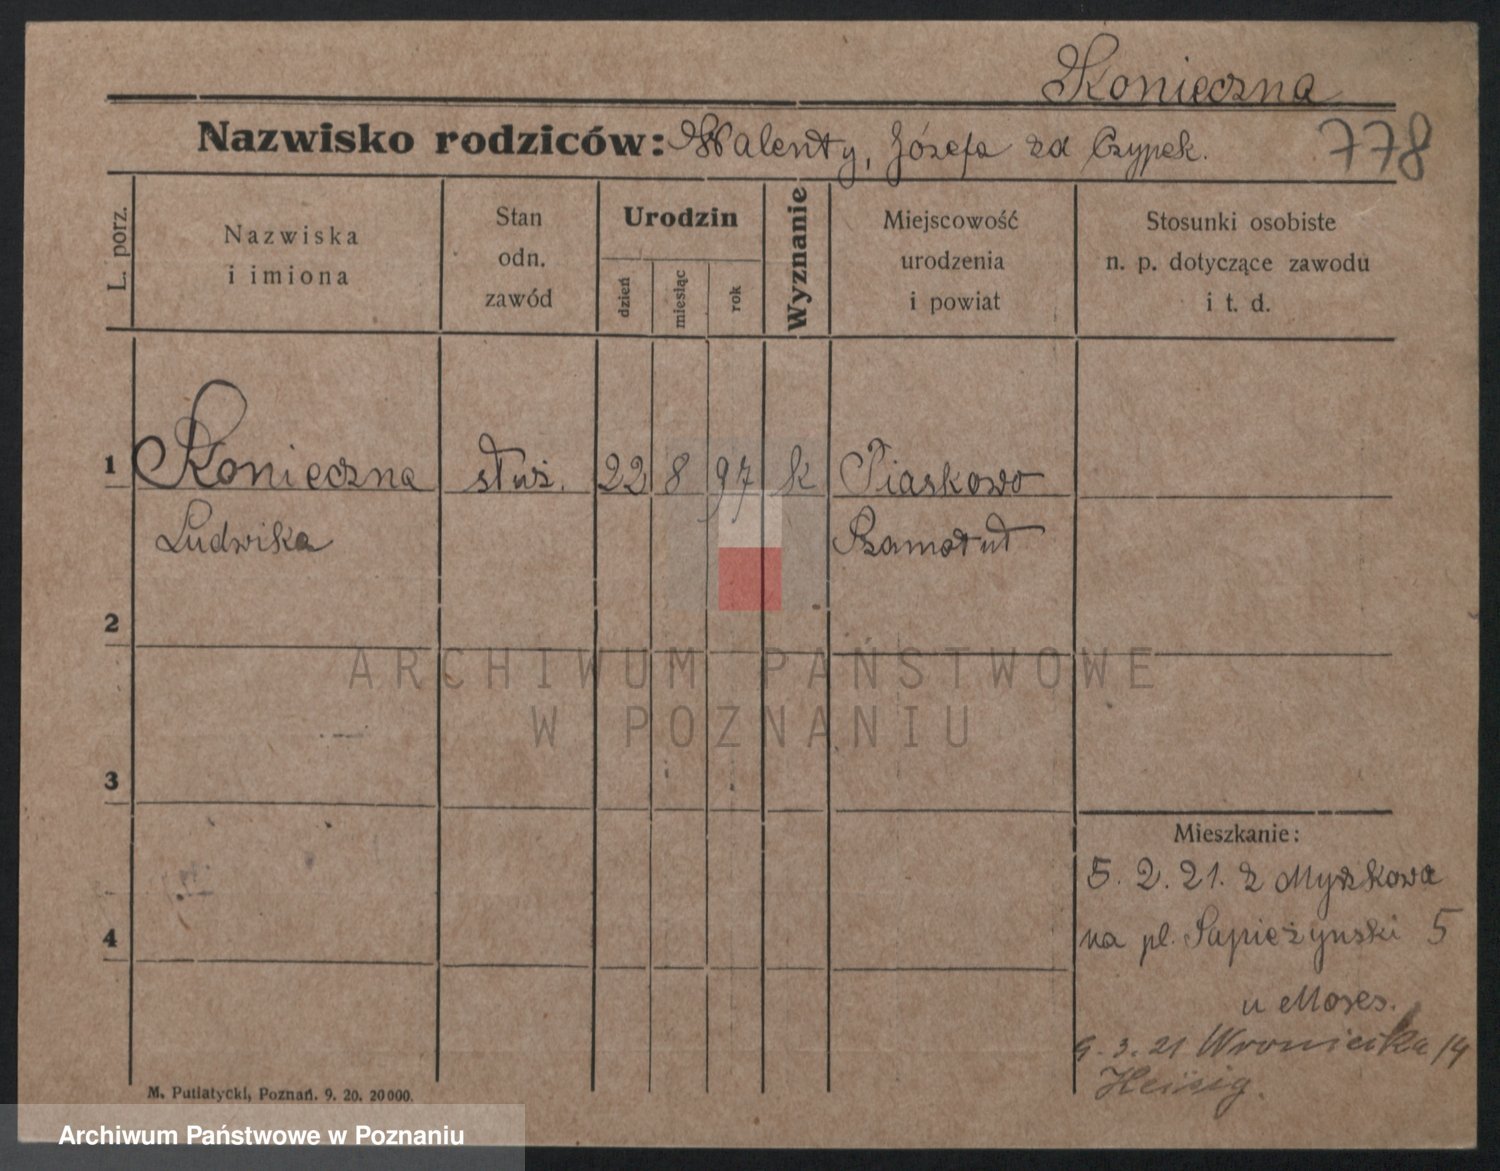 Konieczna
Nazwisko rodziców: Walenty, Józefa zd Czypek.
778
L. porz.
Nazwiska
i imiona
Stan
odn.
zawód
Urodzin
dzień
miesiąc
rok
Wyznanie
Miejscowość
urodzenia
i powiat
Stosunki osobiste
n. p. dotyczące zawodu
i t. d.
1 Konieczna służ. 22 8 97 k Piaskowo
Ludwika Szamotuł
2
ARCHIWUM PAŃSTWOWE
W POZNANIU
3
Mieszkanie:
5. 2. 21. z Myszkowa
4
na pl. Sapieżyński 5
u Moses.
9. 3. 21 Wroniecka 14
Heisig.
M. Putiatycki, Poznań. 9. 20. 20000.
Archiwum Państwowe w Poznaniu